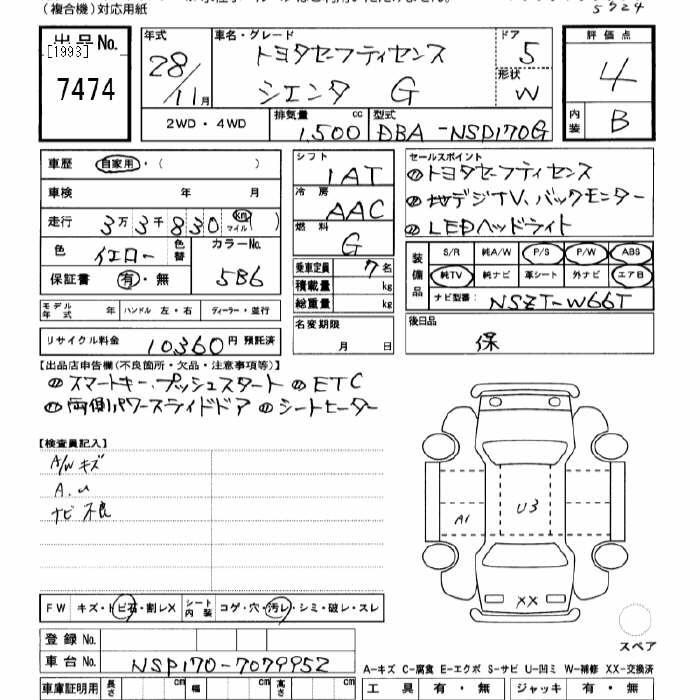 (複合機)対応用紙
5724
出品No.
[1993]
7474
年式
28/11月
車名・グレード
トヨタセーフティセンス
シエンタ G
ドア
5
形状
W
評価点
4
内装
B
2WD・4WD
排気量 1,500 cc
型式 DBA-NSP170G
車歴 自家用・( )
車検 年 月
走行 3万3千830 km マイル ( )
色 イエロー 色替
カラーNo. 5B6
保証書 有・無
モデル年式 年 ハンドル 左・右 ディーラー・並行
リサイクル料金 10360円 預託済
シフト 1AT
冷房 AAC
燃料 G
乗車定員 7名
積載量 kg
総重量 kg
名変期限
月 日
セールスポイント
トヨタセーフティセンス
地デジTV、バックモニター
LEDヘッドライト
装備品
S/R 純A/W P/S P/W ABS
純TV 純ナビ 革シート 外ナビ エアB
ナビ型番: NSZT-W66T
後日品
保
【出品店申告欄(不良箇所・欠品・注意事項等)】
スマートキー、プッシュスタート ETC
両側パワースライドドア シートヒーター
【検査員記入】
A/W キズ
A.u
ナビ 不良
A1
U3
XX
FW キズ・トビ石・割レX シート内装 コゲ・穴・汚レ・シミ・破レ・スレ
スペア
登録No.
車台No. NSP170-7079952
A-キズ C-腐食 E-エクボ S-サビ U-凹ミ W-補修 XX-交換済
車庫証明用 長さ cm 幅 cm 高さ cm
工具 有・無 ジャッキ 有・無